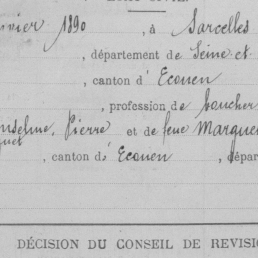 nvier 1890, à Sarcelles
, département de Seine et
, canton d'Ecouen
, profession de boucher
nselme, Pierre et de feue Margue
, canton d'Ecouen, dépar
DÉCISION DU CONSEIL DE REVISIO